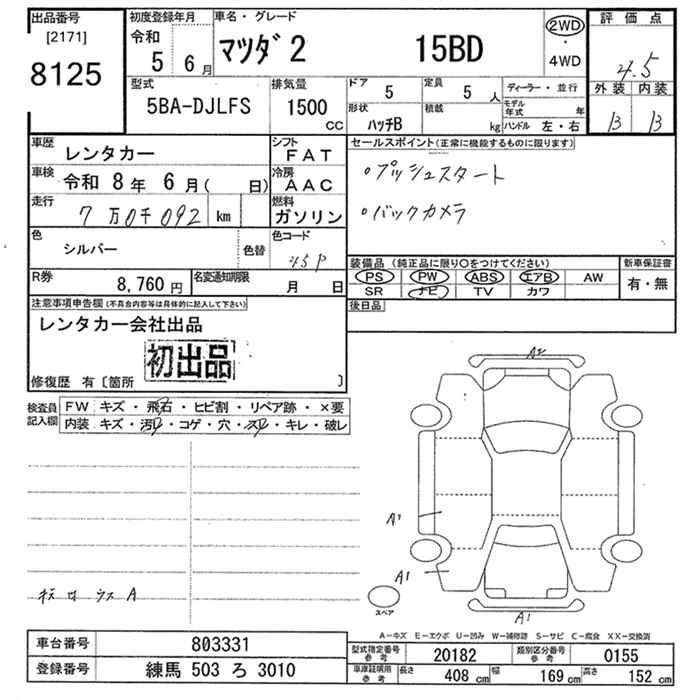 出品番号 初度登録年月 車名・グレード 評価点
[2171] 令和 5 6月 マツダ2 15BD 2WD・4WD 4.5
8125
型式 排気量 ドア 5 定員 5人 ディーラー・並行 外装 内装
5BA-DJLFS 1500cc 形状 ハッチB 積載 kg モデル年式 年 B B
ハンドル 左・右
車歴 レンタカー シフト FAT セールスポイント(正常に機能するものに限ります)
車検 令和 8年 6月( 日) 冷房 AAC ・プッシュスタート
走行 7万0千092 km 燃料 ガソリン ・バックカメラ
色 シルバー 色替 色コード 45P
装備品 (純正品に限り○をつけてください) 新車保証書
R券 8,760円 名変通知期限 月 日 PS PW ABS エアB AW 有・無
SR ナビ TV カワ
注意事項申告欄(不具合内容等は具体的に記入して下さい) 後日品
レンタカー会社出品
初出品
修復歴 有〔箇所 〕
A2
検査員記入欄 FW キズ・飛石・ヒビ割・リペア跡・×要
内装 キズ・汚れ・コゲ・穴・スレ・キレ・破レ
A1
A1
A
スペア
A1
A-キズ E-エクボ U-凹み W-補修跡 S-サビ C-腐食 XX-交換済
車台番号 803331
型式指定番号参考 20182 類別区分番号参考 0155
登録番号 練馬 503 ろ 3010
車庫証明用参考 長さ 408cm 幅 169cm 高さ 152cm